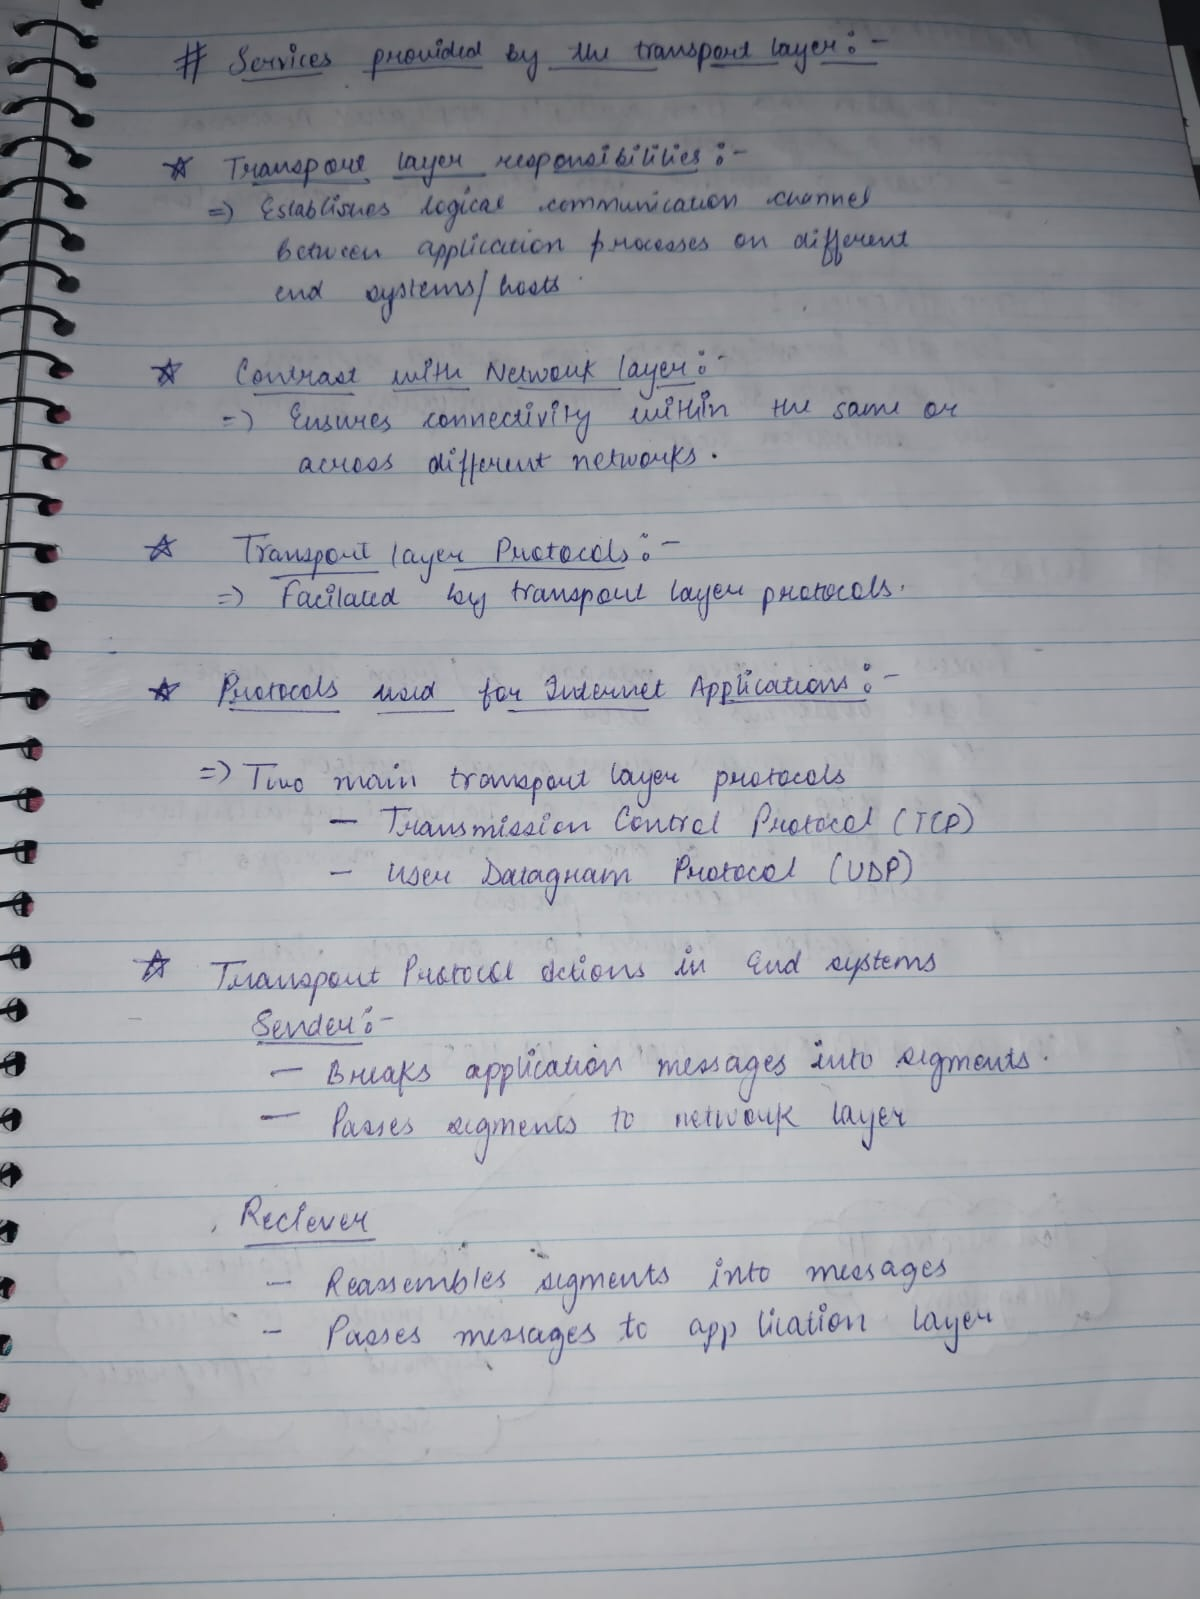 # Services provided by the transport layer :-
☆ Transport layer responsibilities :-
=> Establishes logical communication channel
between application processes on different
end systems/hosts.
☆ Contrast with Network layer :-
=> Ensures connectivity within the same or
across different networks.
☆ Transport layer Protocols :-
=> Facilated by transport layer protocols.
☆ Protocols used for Internet Applications :-
=> Two main transport layer protocols
- Transmission Control Protocol (TCP)
- User Datagram Protocol (UDP)
☆ Transport Protocol actions in End systems
Sender :-
- Breaks application messages into segments.
- Passes segments to network layer
Reciever
- Reassembles segments into messages
- Passes messages to application layer